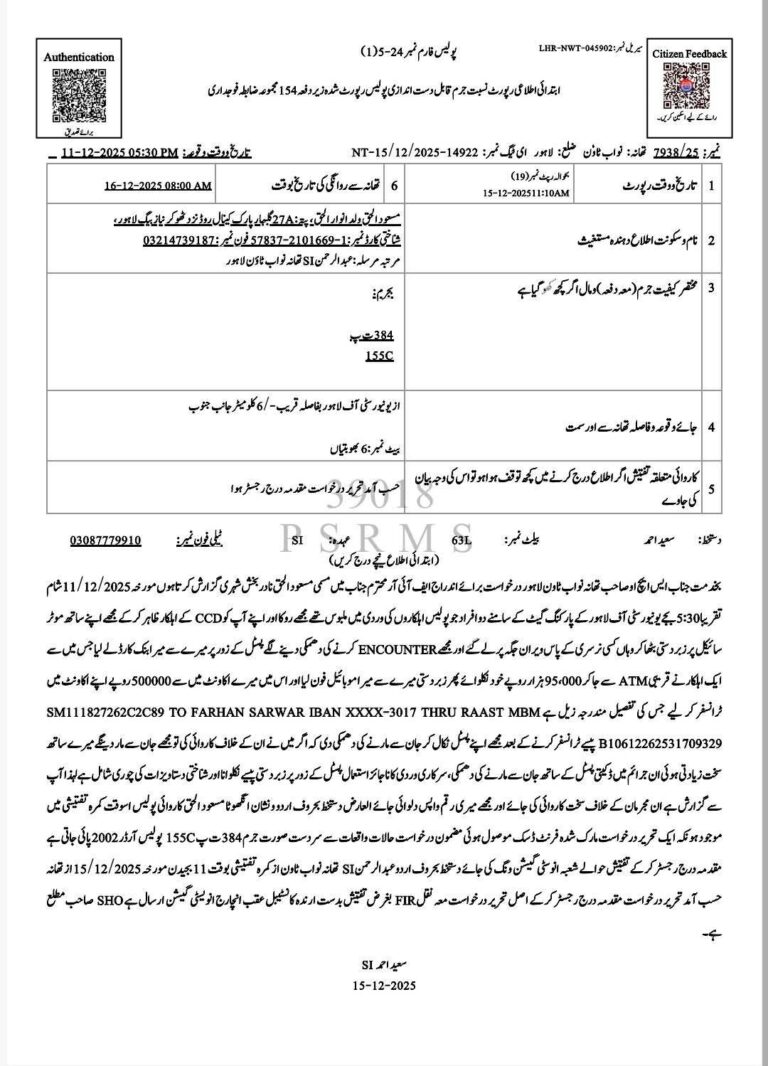 Authentication
برائے تصدیق
پولیس فارم نمبر 24-5(1)
سیریل نمبر: LHR-NWT-045902
Citizen Feedback
رائے کے لیے اسکین کریں۔
ابتدائی اطلاعی رپورٹ نسبت جرم قابل دست اندازی پولیس رپورٹ شدہ زیر دفعہ 154 مجموعہ ضابطہ فوجداری
نمبر: 7938/25 تھانہ: نواب ٹاؤن ضلع: لاہور ای ٹیگ نمبر: NT-15/12/2025-14922 تاریخ و وقت وقوعہ: 11-12-2025 05:30 PM
1 تاریخ و وقت رپورٹ بحوالہ رپٹ نمبر (19)
15-12-202511:10AM
6 تھانہ سے روانگی کی تاریخ بوقت 16-12-2025 08:00 AM
2 نام و سکونت اطلاع دہندہ مستغیث
مسعود الحق ولد انوار الحق، پتہ: 27A گلبہار پارک کینال روڈ نزد ٹھوکر نیاز بیگ لاہور،
شناختی کارڈ نمبر: 1-2101669-57837 فون نمبر: 03214739187
مرتبہ مرسلہ: عبدالرحمن SI تھانہ نواب ٹاؤن لاہور
3 مختصر کیفیت جرم (معہ دفعہ) و مال اگر کچھ کھو گیا ہے
بجرم:
384 ت پ
155C
4 جائے وقوعہ و فاصلہ تھانہ سے اور سمت
از یونیورسٹی آف لاہور بفاصلہ قریب -/6 کلومیٹر جانب جنوب
بیٹ نمبر: 6 بھوبتیاں
5 کاروائی متعلقہ تفتیش اگر اطلاع درج کرنے میں کچھ توقف ہوا ہو تو اس کی وجہ بیان
کی جاوے
حسب آمد تحریر درخواست مقدمہ درج رجسٹر ہوا
39018
PSRMS
دستخط: سعید احمد بیلٹ نمبر: 63L عہدہ: SI ٹیلی فون نمبر: 03087779910
(ابتدائی اطلاع نیچے درج کریں)
بخدمت جناب ایس ایچ او صاحب تھانہ نواب ٹاؤن لاہور درخواست برائے اندراج ایف آئی آر محترم جناب میں مسمی مسعود الحق نادر بخش شہری گزارش کرتا ہوں مورخہ 11/12/2025 شام
تقریبا 5:30 بجے یونیورسٹی آف لاہور کے پارکنگ گیٹ کے سامنے دو افراد جو پولیس اہلکاروں کی وردی میں ملبوس تھے مجھے روکا اور اپنے آپ کو CCD کے اہلکار ظاہر کر کے مجھے اپنے ساتھ موٹر
سائیکل پر زبردستی بٹھا کر وہاں کسی نرسری کے پاس ویران جگہ پر لے گئے اور مجھے ENCOUNTER کرنے کی دھمکی دینے لگے پسٹل کے زور پر میرے سے میرا بنک کارڈ لے لیا جس میں سے
ایک اہلکار نے قریبی ATM سے جا کر 95,000 ہزار روپے خود نکلوائے پھر زبردستی میرے سے میرا موبائیل فون لیا اور اس میں میرے اکاونٹ میں سے 500000 روپے اپنے اکاونٹ میں
ٹرانسفر کر لیے جس کی تفصیل مندرجہ زیل ہے SM111827262C2C89 TO FARHAN SARWAR IBAN XXXX-3017 THRU RAAST MBM
B10612262531709329 پیسے ٹرانسفر کرنے کے بعد مجھے اپنے پسٹل نکال کر جان سے مارنے کی دھمکی دی کہ اگر میں نے ان کے خلاف کاروائی کی تو مجھے جان سے مار دینگے میرے ساتھ
سخت زیادتی ہوئی ان جرائم میں ڈکیتی پسٹل کے ساتھ جان سے مارنے کی دھمکی، سرکاری وردی کا ناجائز استعمال پسٹل کے زور پر زبردستی پیسے نکلوانا اور شناختی دستاویزات کی چوری شامل ہے لہذا آپ
سے گزارش ہے ان مجرمان کے خلاف سخت کاروائی کی جائے اور مجھے میری رقم واپس دلوائی جائے العارض دستخط بحروف اردو و نشان انگھوٹا مسعود الحق کاروائی پولیس اسوقت کمرہ تفتیشی میں
موجود ہوں کہ ایک تحریر درخواست مارک شدہ فرنٹ ڈسک موصول ہوئی مضمون درخواست حالات واقعات سے سردست صورت جرم 384 ت پ 155C پولیس آرڈر 2002 پائی جاتی ہے
مقدمہ درج رجسٹر کر کے تفتیش حوالے شعبہ انوسٹی گیشن ونگ کی جائے دستخط بحروف اردو عبدالرحمن SI تھانہ نواب ٹاون از کمرہ تفتیشی بوقت 11 بجیدن مورخہ 15/12/2025 از تھانہ
حسب آمد تحریر درخواست مقدمہ درج رجسٹر کر کے اصل تحریر درخواست معہ نقل FIR بغرض تفتیش بدست ارندہ کانسٹیبل عقب انچارج انویسٹی گیشن ارسال ہے SHO صاحب مطلع
ہے۔
سعید احمد SI
15-12-2025